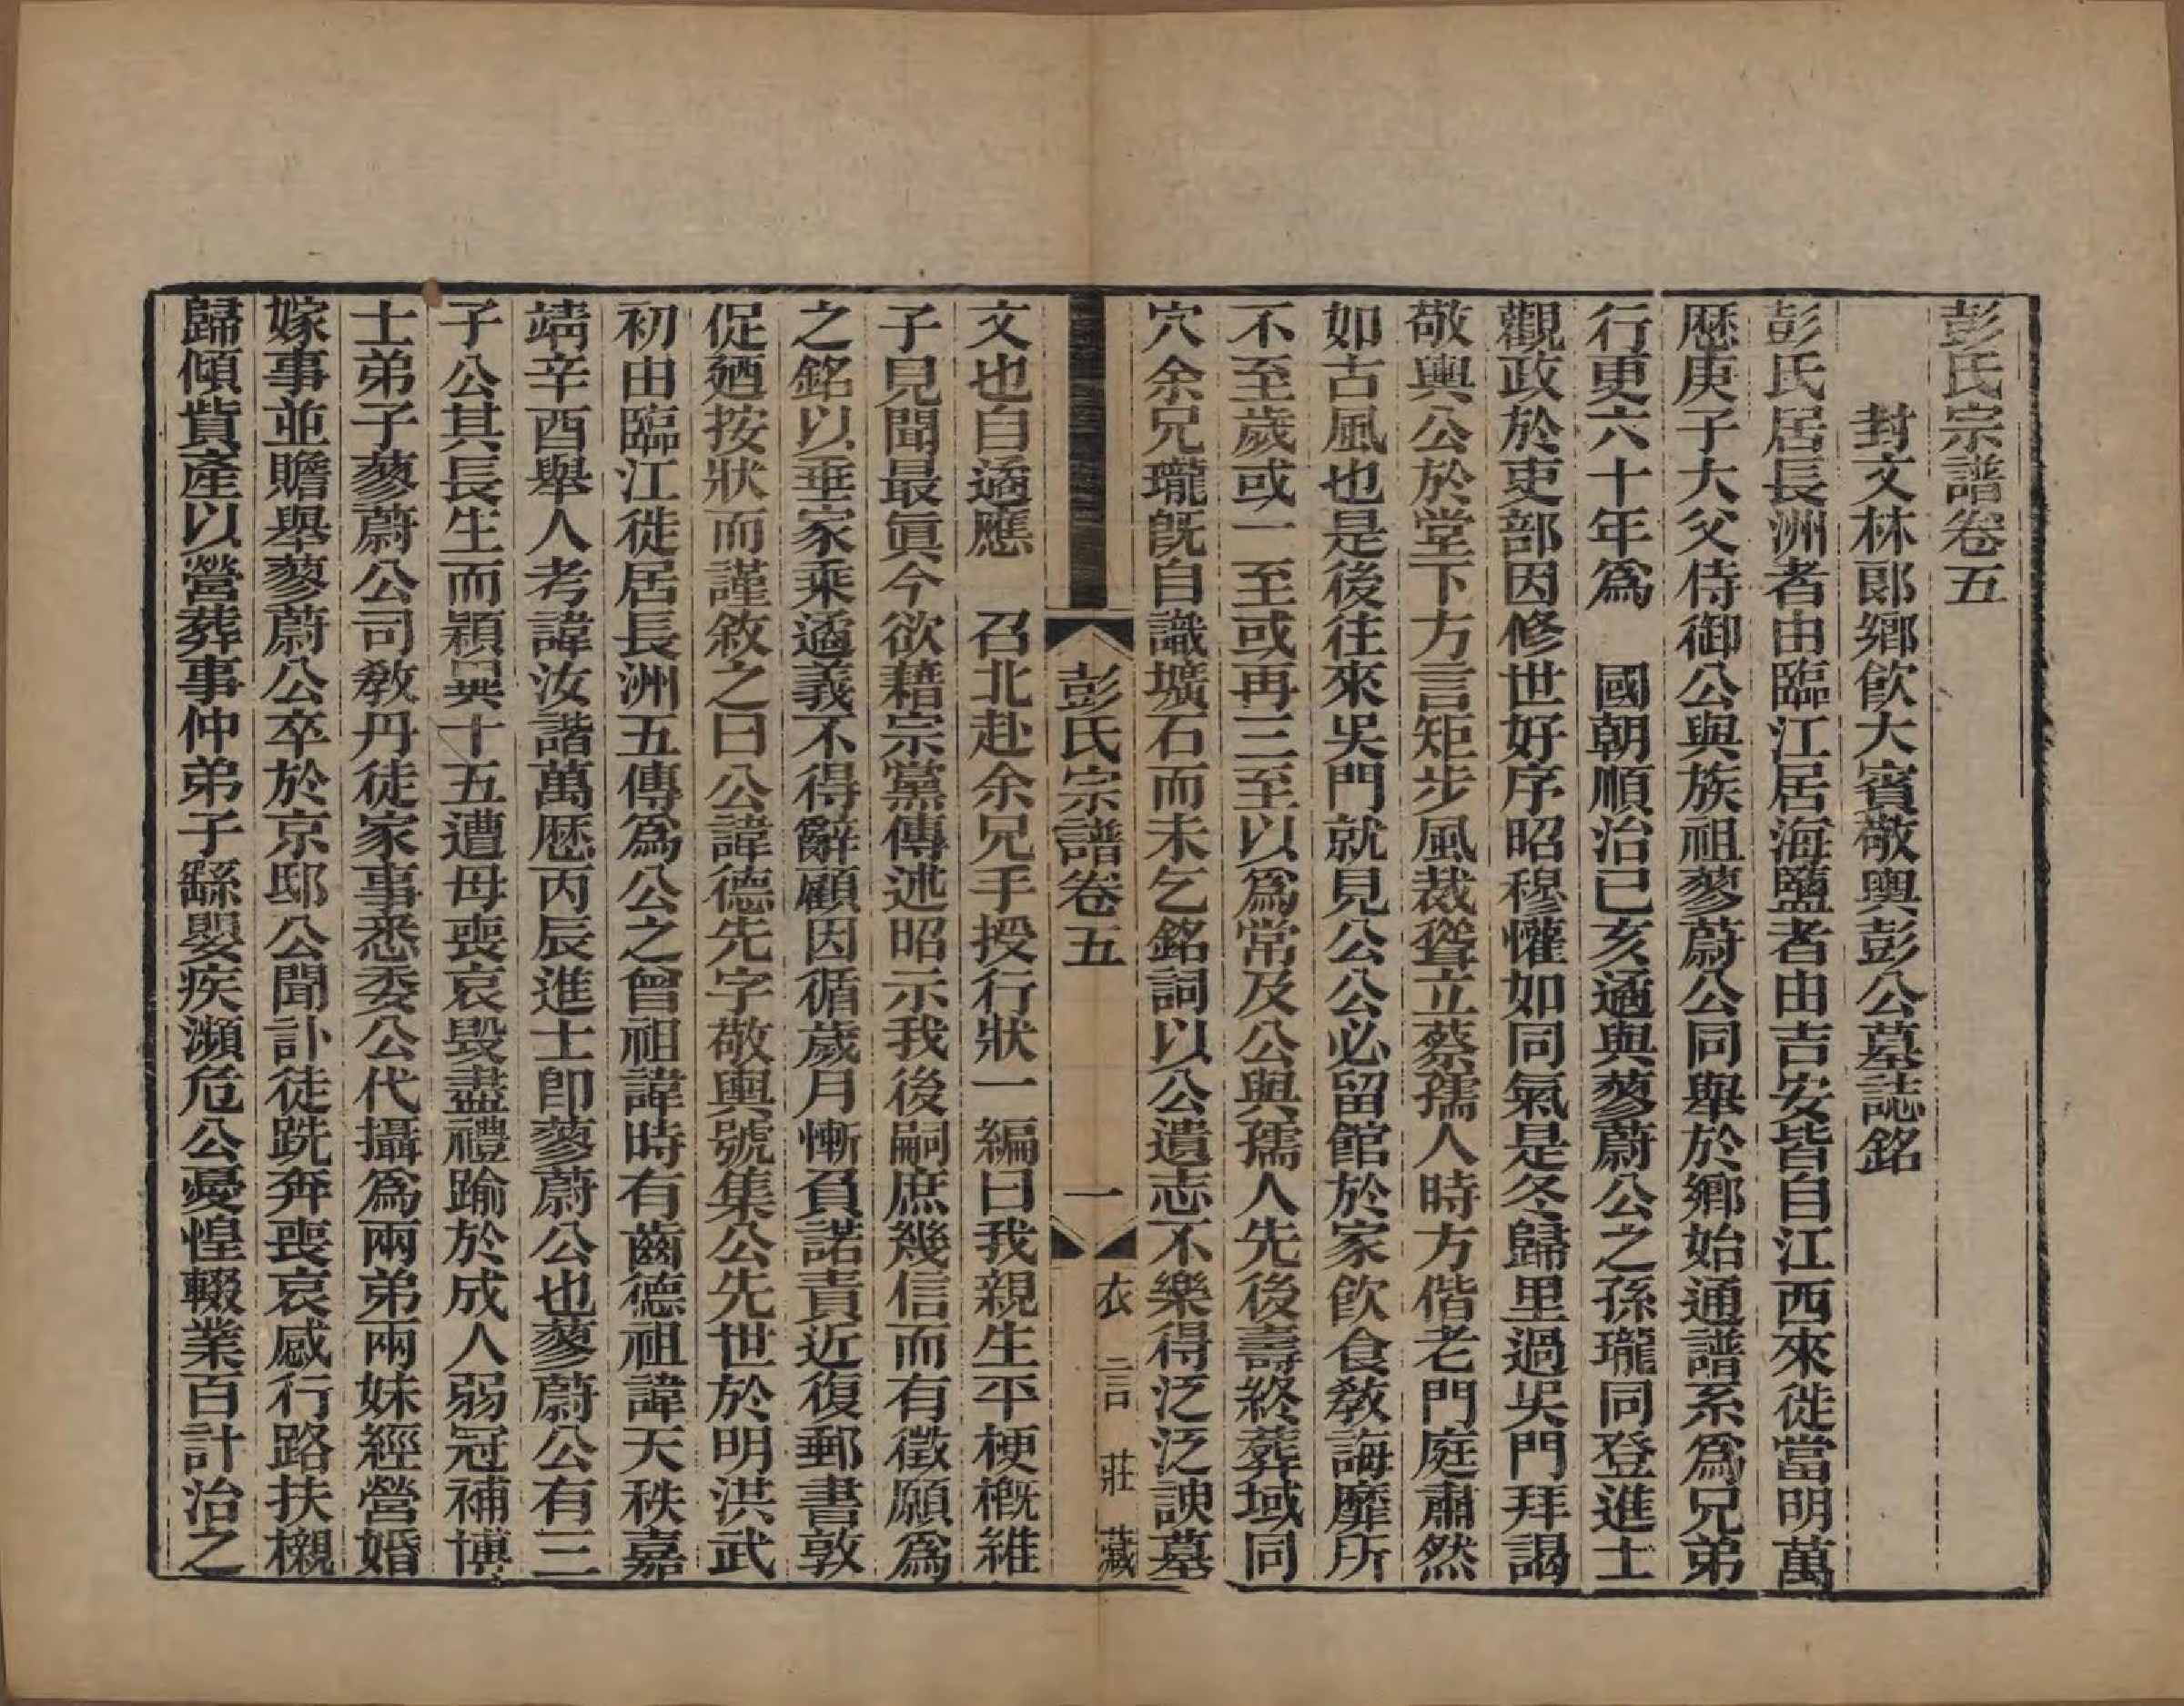 彭氏宗譜卷五
封文林郎鄉飲大賓敬輿彭公墓誌銘
彭氏居長洲者由臨江居海鹽者由吉安皆自江西來徙當明萬
歷庚子大父侍御公與族祖蓼蔚公同舉於鄉始通譜系為兄弟
行更六十年為　國朝順治己亥遹與蓼蔚公之孫瓏同登進士
觀政於吏部因修世好序昭穆懽如同氣是冬歸里過吳門拜謁
敬輿公於堂下方言矩步風裁聳立蔡孺人時方偕老門庭肅然
如古風也是後往來吳門就見公公必留館於家飲食教誨靡所
不至歲或一至或再三至以為常及公與孺人先後壽終葬域同
穴余兄瓏既自識壙石而未乞銘詞以公遺志不樂得泛泛諛墓
彭氏宗譜卷五
一
衣言莊藏
文也自遹應　召北赴余兄手授行狀一編曰我親生平梗槪維
子見聞最眞今欲藉宗黨傳述昭示我後嗣庶幾信而有徵願為
之銘以垂家乘遹義不得辭顧因循歲月慚負諾責近復郵書敦
促廼按狀而謹敘之曰公諱德先字敬輿號集公先世於明洪武
初由臨江徙居長洲五傳為公之曾祖諱時有齒德祖諱天秩嘉
靖辛酉舉人考諱汝諧萬歷丙辰進士卽蓼蔚公也蓼蔚公有三
子公其長生而穎異十五遭母喪哀毀盡禮踰於成人弱冠補博
士弟子蓼蔚公司教丹徒家事悉委公代攝為兩弟兩妹經營婚
嫁事並贍舉蓼蔚公卒於京邸公聞訃徒跣奔喪哀感行路扶櫬
歸傾貲產以營葬事仲弟子繇嬰疾瀕危公憂惶輟業百計治之